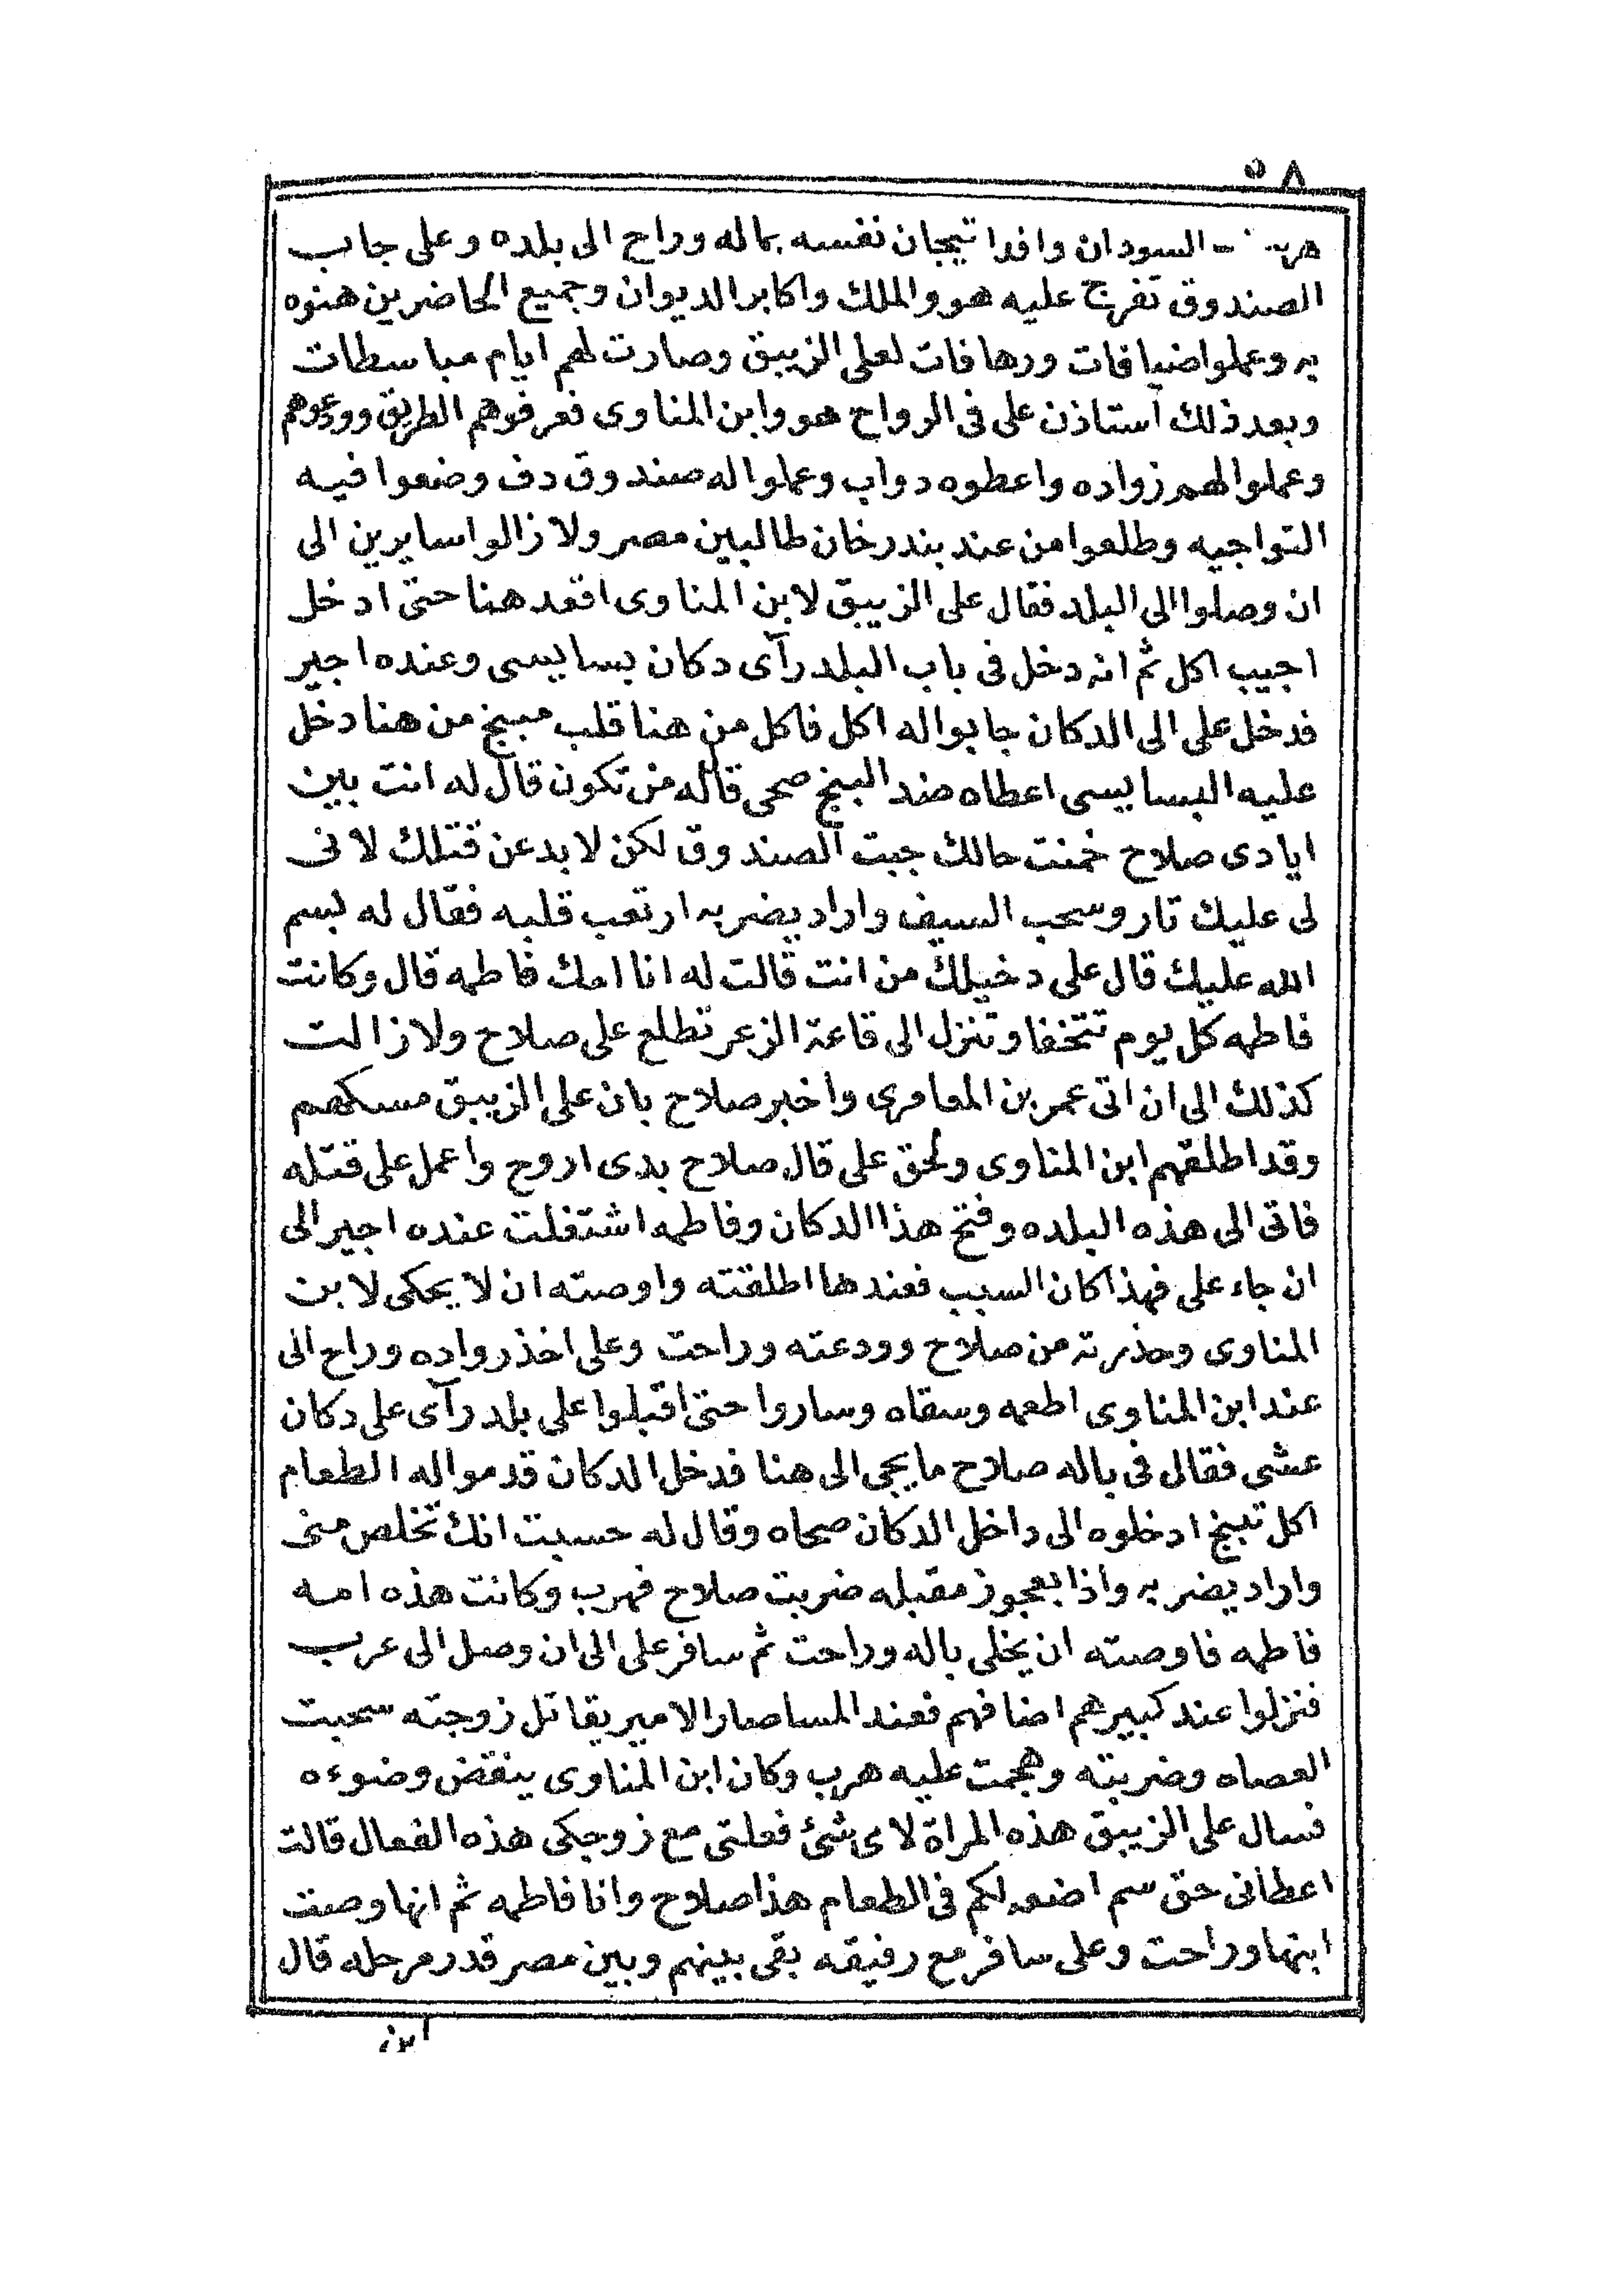 ٥٨
السودان وافدا تيجان نفسه بماله وراح الى بلده وعلى جاب
الصندوق تفرج عليه هو والملك واكابر الديوان وجميع الحاضرين هنوه
به وعملوا ضيافات ورهافات لعلى الزيبق وصارت لهم ايام مباسطات
وبعد ذلك أستاذن على فى الرواح هو وابن المناوى فعرفوهم الطريق وودعوهم
وعملوا لهم زواده واعطوه دواب وعملوا له صندوق دف وضعوا فيه
التواجيه وطلعوا من عند بندرخان طالبين مصر ولا زالوا سايرين الى
ان وصلوا الى البلد فقال على الزيبق لابن المناوى اقعد هنا حتى ادخل
اجيب اكل ثم انه دخل فى باب البلد رآى دكان بسايسى وعنده اجير
فدخل على الى الدكان جابوا له اكل فاكل من هنا قلب مبنج من هنا دخل
عليه البسايسى اعطاه ضد البنج صحى قال له من تكون قال له انت بين
ايادى صلاح خمنت حالك جبت الصندوق لكن لا بد عن قتلك لانى
لى عليك تار وسحب السيف واراد يضربه ارتعب قلبه فقال له بسم
الله عليك قال على دخيلك من انت قالت له انا امك فاطمه قال وكانت
فاطمه كل يوم تتخفا وتنزل الى قاعة الزعر تطلع على صلاح ولا زالت
كذلك الى ان اتى عمر بن المعامرى واخبر صلاح بان على الزيبق مسكهم
وقد اطلقهم ابن المناوى ولحق على قال صلاح بدى اروح واعمل على قتله
فاتى الى هذه البلده وفتح هذا الدكان وفاطمه اشتغلت عنده اجير الى
ان جاء على فهذا كان السبب فعندها اطلقته واوصته ان لا يحكى لابن
المناوى وحذرته من صلاح وودعته وراحت وعلى اخذ زواده وراح الى
عند ابن المناوى اطعمه وسقاه وساروا حتى اقبلوا على بلد رآى على دكان
عشى فقال فى باله صلاح ما يجى الى هنا فدخل الدكان قدموا له الطعام
اكل تبنج ادخلوه الى داخل الدكان صحاه وقال له حسبت انك تخلص منى
واراد يضربه واذا بعجوز مقبله ضربت صلاح فهرب وكانت هذه امه
فاطمه فاوصته ان يخلى باله وراحت ثم سافر على الى ان وصل الى عرب
فنزلوا عند كبيرهم اضافهم فعند المسا صار الامير يقاتل زوجته سحبت
العصاه وضربته وهجمت عليه هرب وكان ابن المناوى ينقض وضوءه
فسال على الزيبق هذه المراة لاى شئ فعلتى مع زوجكى هذه الفعال قالت
اعطانى حق سم اضعه لكم فى الطعام هذا صلاح وانا فاطمه ثم انها وصت
ابنها وراحت وعلى سافر مع رفيقه بقى بينهم وبين مصر قدر مرحله قال
ابن